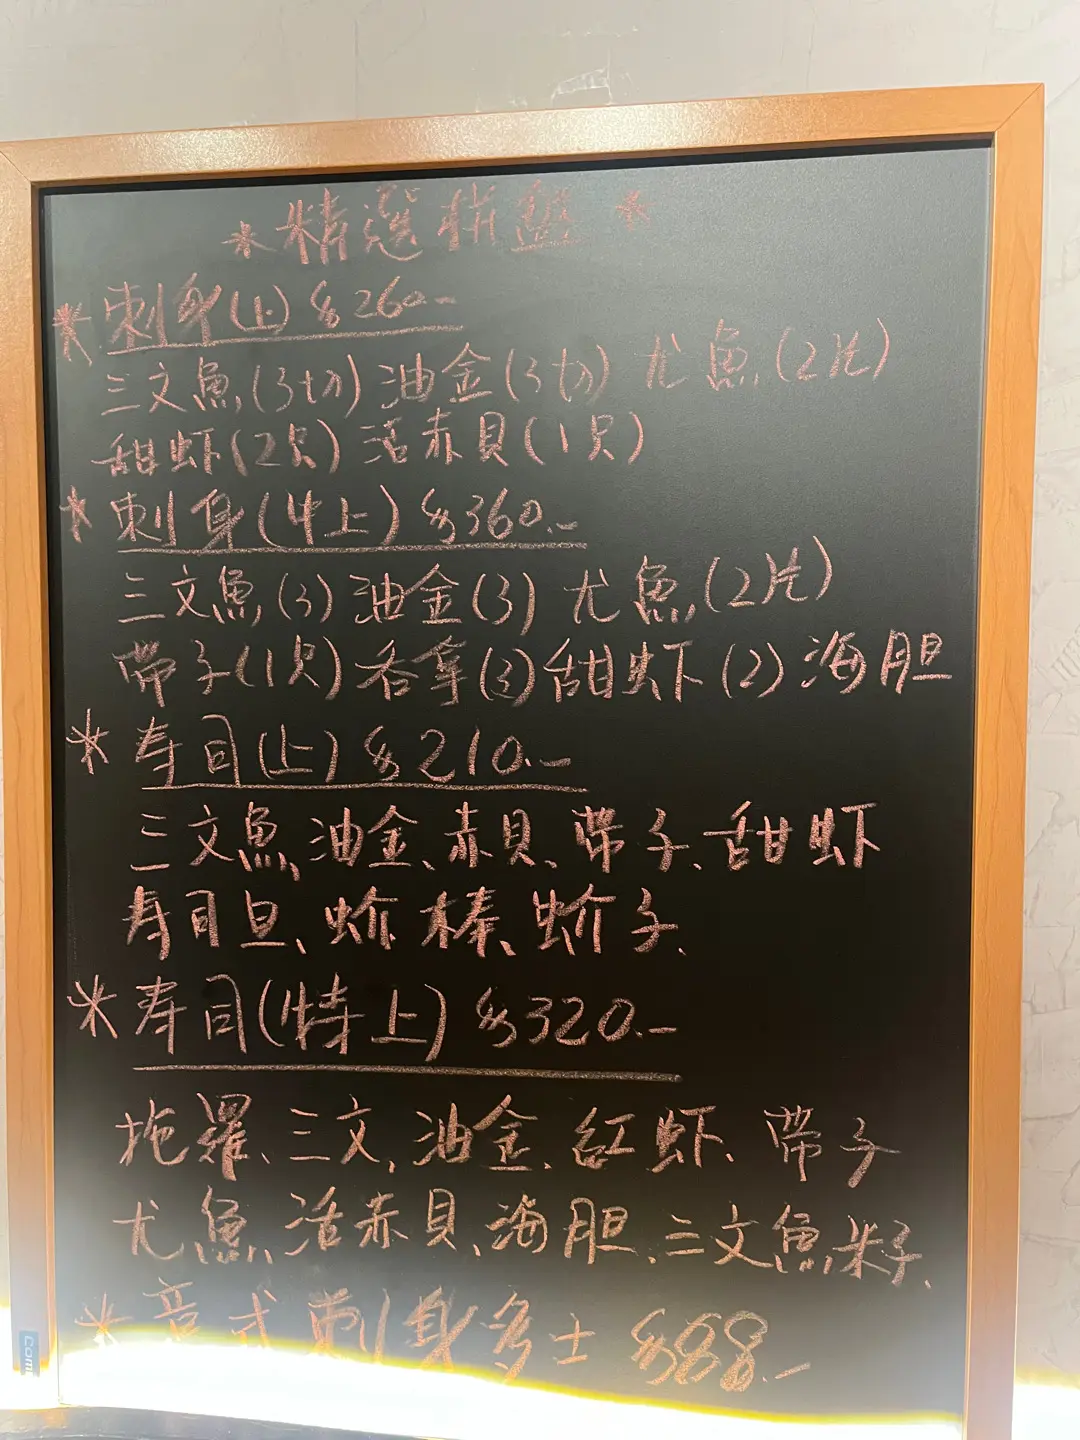 * 精選拼盤 *
* 刺身(上) $260.-
三文魚(3切) 油金(3切) 尤魚(2片)
甜虾(2只) 活赤貝(1只)
* 刺身(特上) $360.-
三文魚(3) 油金(3) 尤魚(2片)
帶子(1只) 吞拿(3) 甜虾(2) 海胆
* 寿司(上) $210.-
三文魚、油金、赤貝、帶子、甜虾
寿司旦、蚧棒、蚧子、
* 寿司(特上) $320.-
拖羅、三文、油金、紅虾、帶子
尤魚、活赤貝、海胆、三文魚籽、
* 意式刺身多士 $88.-